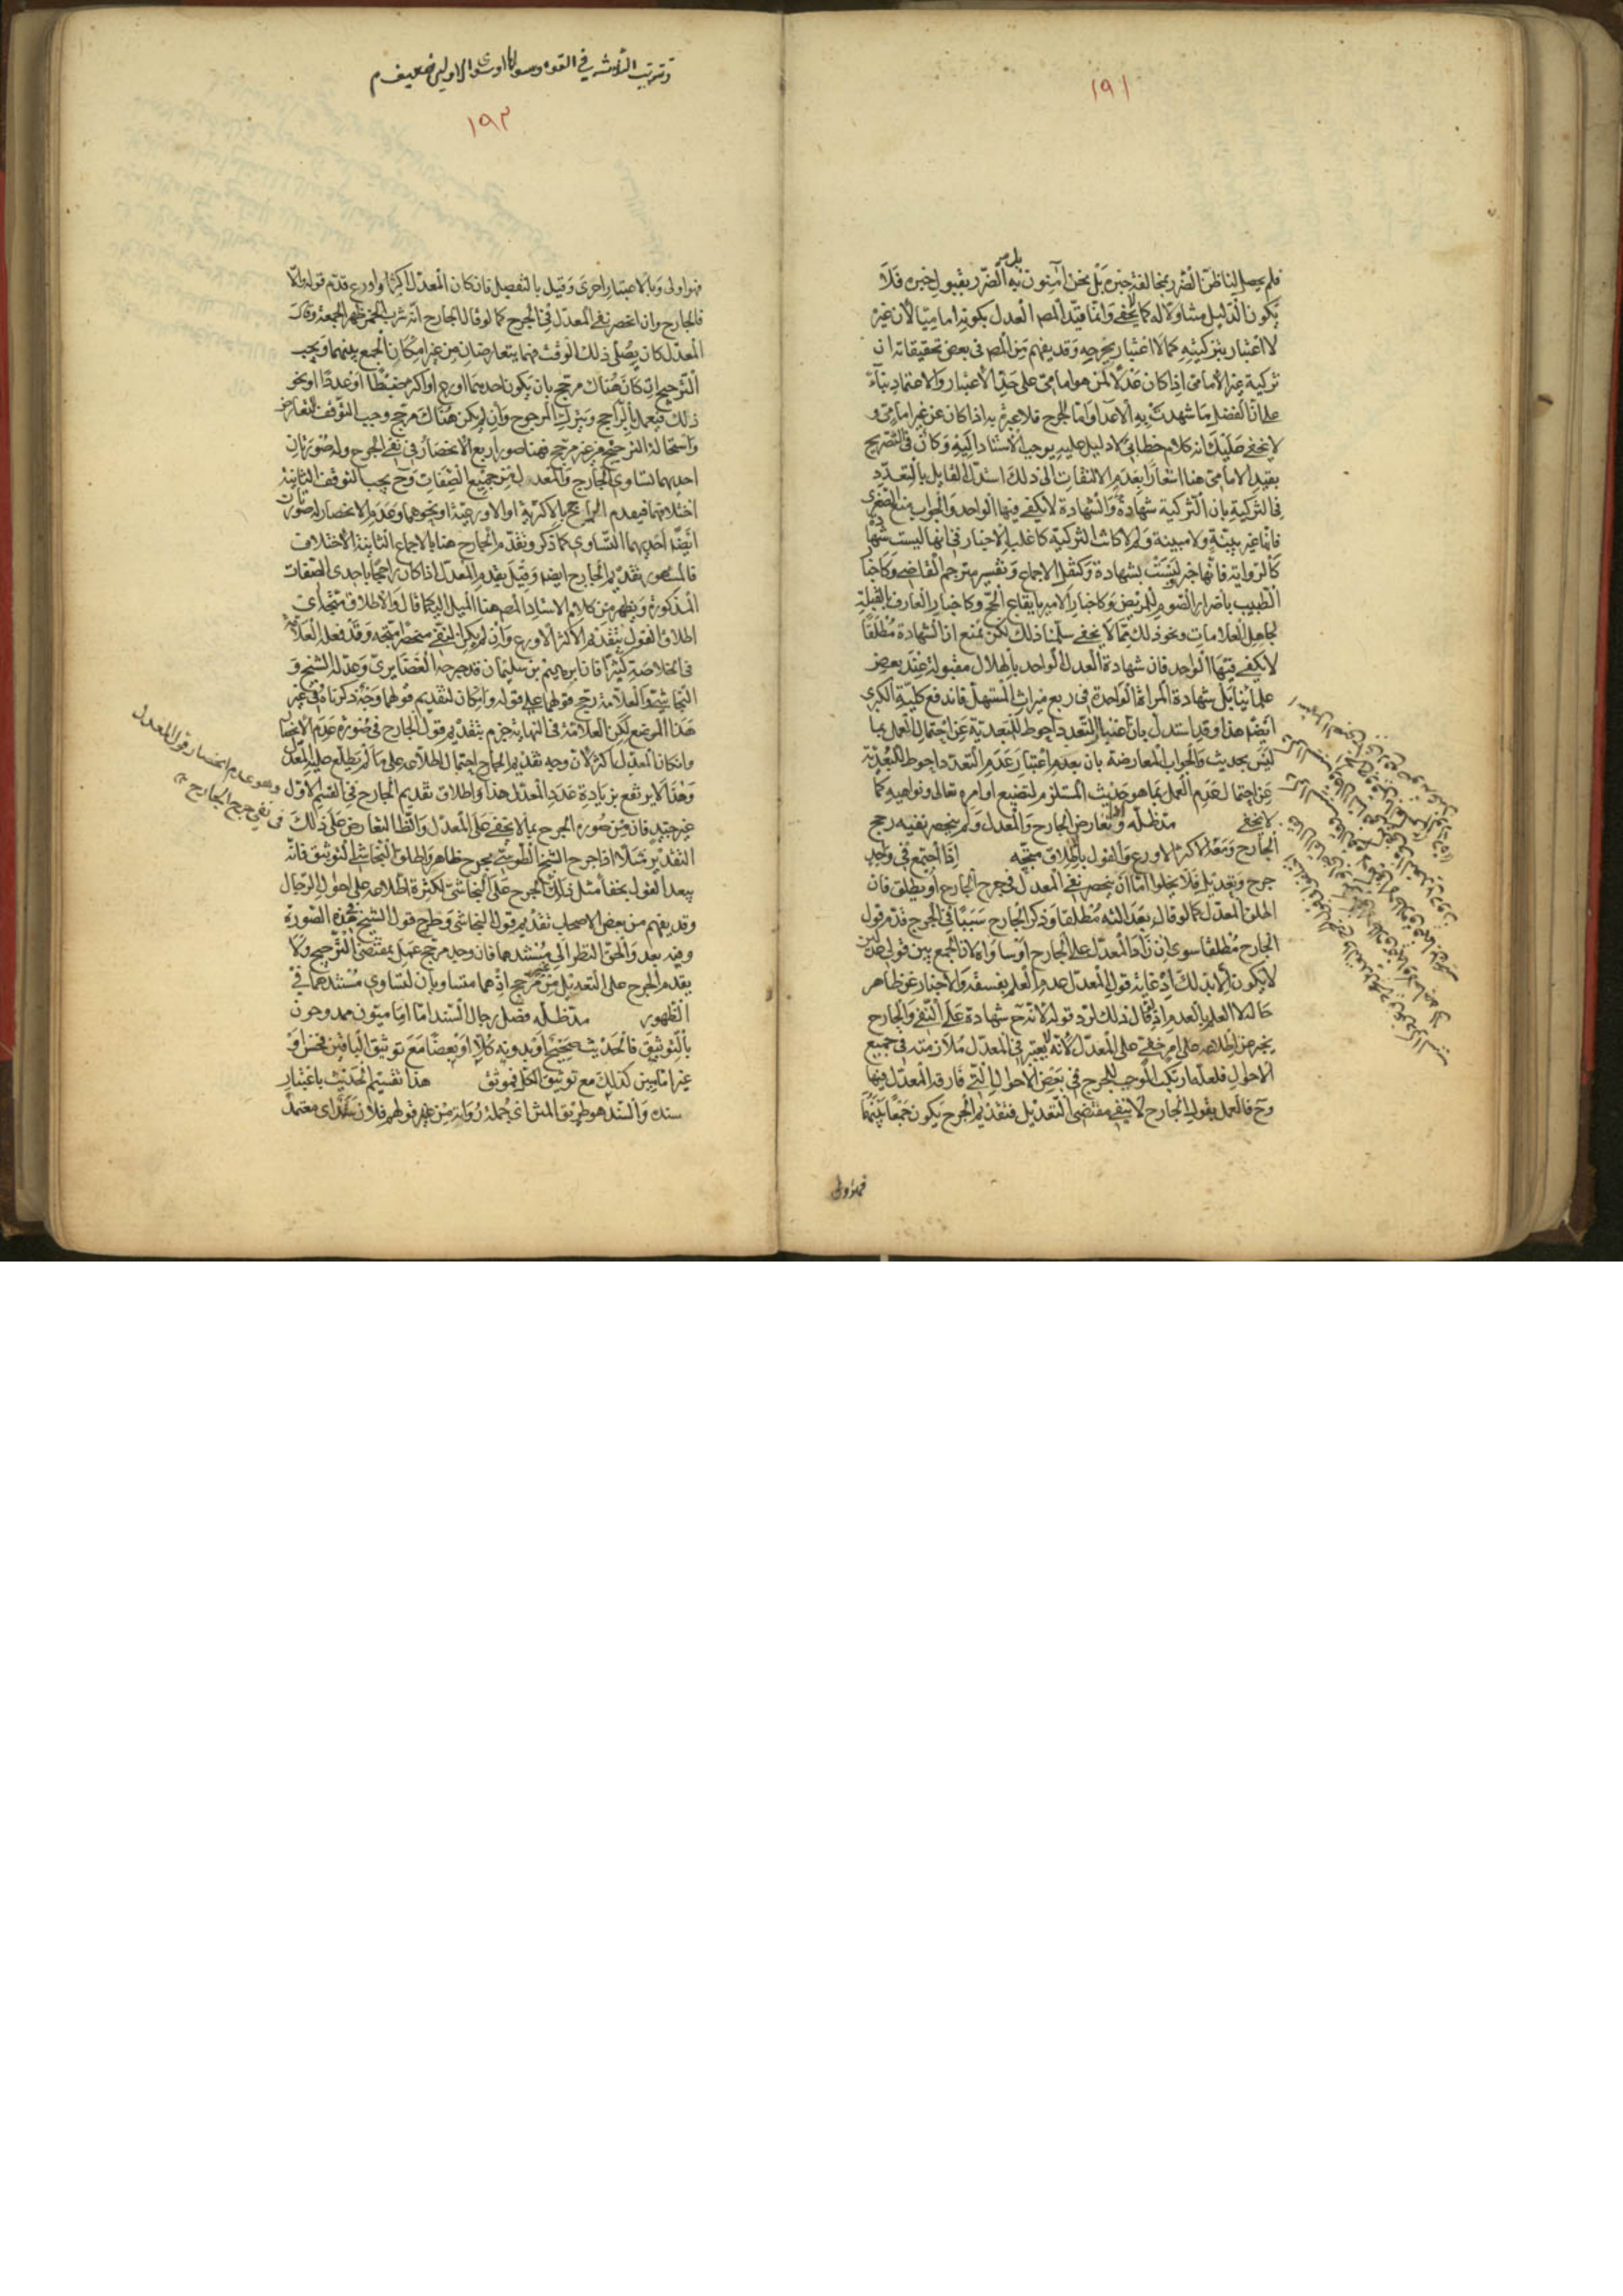 ١٩١
فلم يحصل لنا ظن الضرر بمخالفة خبره بل نحن آمنون به الضرر بقبول خبره فلا
يكون الدليل متناولا له كما لا يخفى وانما قيد المص العدل بكونه اماميا لأن غير
لا اعتبار بتزكيته كما لا اعتبار بجرحه وقد يفهم من المص في بعض تحقيقاته ان
تزكية غير الامامي اذا كان عدلا لمن هو امامي على حد الاعتبار والاعتماد بناء
على ان الفضل ما شهدت به الاعدا واما الجرح فلا عبرة به اذا كان عن غير امامي و
لا يخفى عليك انه كلام خطابي لا دليل عليه يوجب الاستناد اليه وكان في التصريح
بقيد الامامي هنا اشعارا بعدم الالتفات الى ذلك استدل القايل بالتعدد
في التزكية بان التزكية شهادة والشهادة لا يكفي فيها الواحد والجواب منع الصغرى
فانها غير بينة ولا مبينة ولم لا كانت التزكية كاغلب الاخبار في انها ليست شهادة
كالرواية فانها خبر ليست بشهادة وكنقل الاجماع وتفسير مترجم القاضي وكاخبار
الطبيب باضرار الصوم المريض وكاخبار الامير بايقاع الحج وكاخبار العارف بالقبلة
لجاهل العلامات ونحو ذلك مما لا يخفى سلمنا ذلك لكن نمنع ان الشهادة مطلقا
لا يكفي فيها الواحد فان شهادة العدل الواحد بالهلال مقبولة عند بعض
علمائنا بل شهادة المراة الواحدة في ربع ميراث المستهل فاندفع كلية الكبرى
ايضا هذا وقد استدل بان اعتبار التعدد احوط للتبعدية عن احتمال العمل بما
ليس بحديث والجواب المعارضة بان بعدم اعتبار عدم التعدد احوط للتبعدية
عن احتمال عدم العمل بما هو حديث المستلزم لتضييع اوامره تعالى ونواهيه كما
لا يخفى مد ظله ولو تعارض الجارح والمعدل ولم ينحصر نفيه رجح
الجارح ومعه الاكثر الاورع والقول باطلاق متجه اذا اجتمع في واحد
جرح وتعديل فلا يخلوا اما ان ينحصر نفي المعدل في جرح الجارح او يطلق فان
اطلق المعدل كما لو قال بعدالته مطلقا وذكر الجارح سببا في الجرح قدم قول
الجارح مطلقا سوى ان زاد المعدل على الجارح او ساواه لان الجمع بين قولي عدلين
لا يكون الا بذلك اذ غاية قول المعدل عدم العلم بفسقه والاخبار عن ظاهر
حاله لا العلم بالعدم اذ لو قال ذلك لرد قوله لانه ح شهادة على النفي والجارح
يخبر عن اطلاعه على امر خفي على المعدل لانه لا يعتبر في المعدل ملازمته في جميع
الاحوال فلعله ارتكب الموجب للجرح في بعض الاحوال التي فارقه المعدل فيها
وح فالعمل بقول الجارح لا ينفي مقتضى التعديل فتقديم الجرح يكون جمعا بينهما
فهو اولى
وترتب الثلاثة في القوة وسوى الاولين ضعيف م
١٩٢
فهو اولى وبالاعتبار احرى وقيل بالتفصيل فان كان المعدل اكثر او اورع قدم قوله والا
فالجارح وان انحصر نفي المعدل في الجرح كما لو قال الجارح انه شرب الخمر ظهر الجمعة وقال
المعدل كان يصلي ذلك الوقت فهما يتعارضان من غير امكان الجمع بينهما ويجب
الترجيح ان كان هناك مرجح بان يكون احدهما اورع او اكثر ضبطا او عددا او نحو
ذلك فيعمل بالراجح ويترك المرجوح وان لم يكن هناك مرجح وجب التوقف للتعارض
واستحالة الترجيح من غير مرجح فهنا صور اربع الانحصار في نفي الجرح وله صورتان
احديهما تساوي الجارح والمعدل في جميع الصفات وح يجب التوقف الثانية
اختلافهما فيقدم المرجح بالاكثرية او الاورعية او نحوهما وعدم الانحصار له صورتان
ايضا احديهما التساوي كما ذكر وتقدم الجارح هنا بالاجماع الثانية الاختلاف
فالمشهور تقديم الجارح ايضا وقيل يقدم المعدل اذا كان راجحا باحدى الصفات
المذكورة ويظهر من كلام الاستاد المص هنا الميل اليه كما قال والاطلاق متجه اي
اطلاق القول بتقديم الاكثر الاورع وان لم يكن النفي منحصرا متجه وقد فعله العلامة
في الخلاصة كثيرا فان ابرهيم بن سليمان قد جرحه الغضايري وعدله الشيخ و
النجاشي والعلامة رجح قولهما على قوله وامكان لتقديم قولهما وجه ذكرناه في غير
هذا الموضع لكن العلامة في النهاية جزم بتقديم قول الجارح في صورة عدم الانحصار
وان كان المعدل اكثر لان وجه تقديم الجارح احتمال اطلاعه على ما لم يطلع عليه المعدل
وهذا لا يرتفع بزيادة عدد المعدل هذا واطلاق تقديم الجارح في القسم الاول
غير جيد فان من صوره الجرح بما لا يخفى على المعدل والظ التعارض على ذلك
التقدير مثلا اذا جرح الشيخ الطوسي بجرح ظاهر واطلق النجاشي التوثيق فانه
يبعد القول بخفاء مثل ذلك الجرح على النجاشي لكثرة اطلاعه على احوال الرجال
وقد يفهم من بعض الاصحاب تقديم قول النجاشي وطرح قول الشيخ في هذه الصورة
وفيه بعد والحق النظر الى مستندهما فان وجد مرجح عمل بمقتضى الترجيح ولا
يقدم الجرح على التعديل من غير مرجح اذ هما متساويان لتساوي مستندهما في
الظهور مد ظله فصل رجال السند اما اماميون ممدوحون
بالتوثيق فالحديث صحيح او بدونه كلا او بعضا مع توثيق الباقين فحسن او
غير اماميين كذلك مع توثيق الكل فموثق هذا تقسيم الحديث باعتبار
سنده والسند هو طريق المتن اي جملة رواته من غير قولهم فلان سند اي معتمد
وهو عدم انحصار قول المعدل
في نفي جرح الجارح